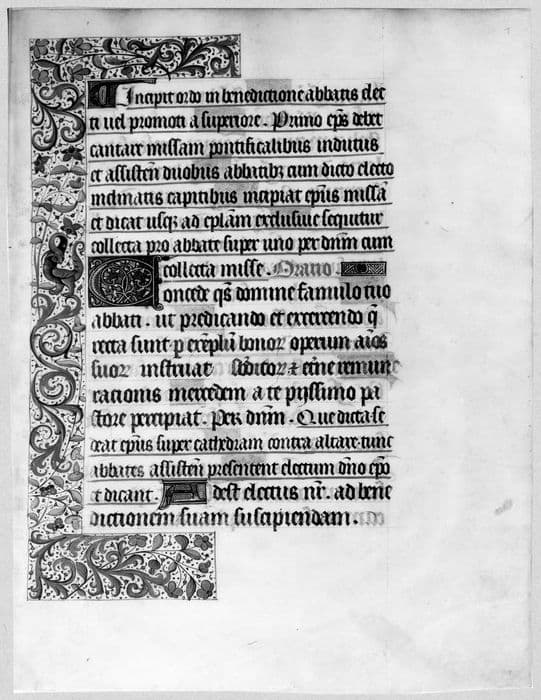 Incipit ordo in benedictione abbatis elec
ti uel promoti a superiore. Primo eps debet
cantare missam pontificalibus indutus
et assisten duobus abbatibz cum dicto electo
inclinatis capitibus incipiat epus missã
et dicat usqz ad eplam exclusiue sequitur
collecta pro abbate super uno per dnm cum
collecta misse. Oratio.
Concede qs domine famulo tuo
abbati. ut predicando et exercendo q
recta sunt. p exemplũ bonor operum aĩos
suor instruat et eterne remun
rationis mercedem a te pyssimo pa
store percipiat. Per dnm. Que dicta se
deat epus super cathedram contra altare. tunc
abbates assisten presentent electum dno epo
et dicant. Adest electus nr. ad bene
dictionem suam suscipiendam.